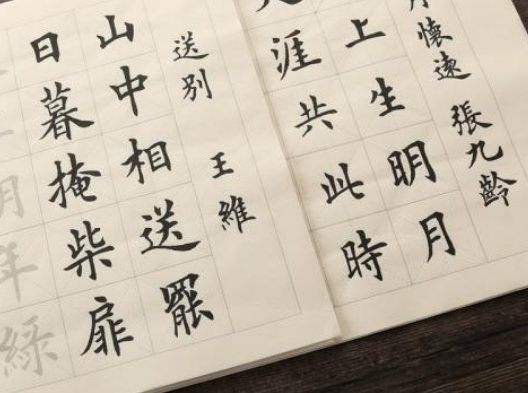 月懷遠 張九齡
上生明月
涯共此時
送別 王維
山中相送罷
日暮掩柴扉
年綠